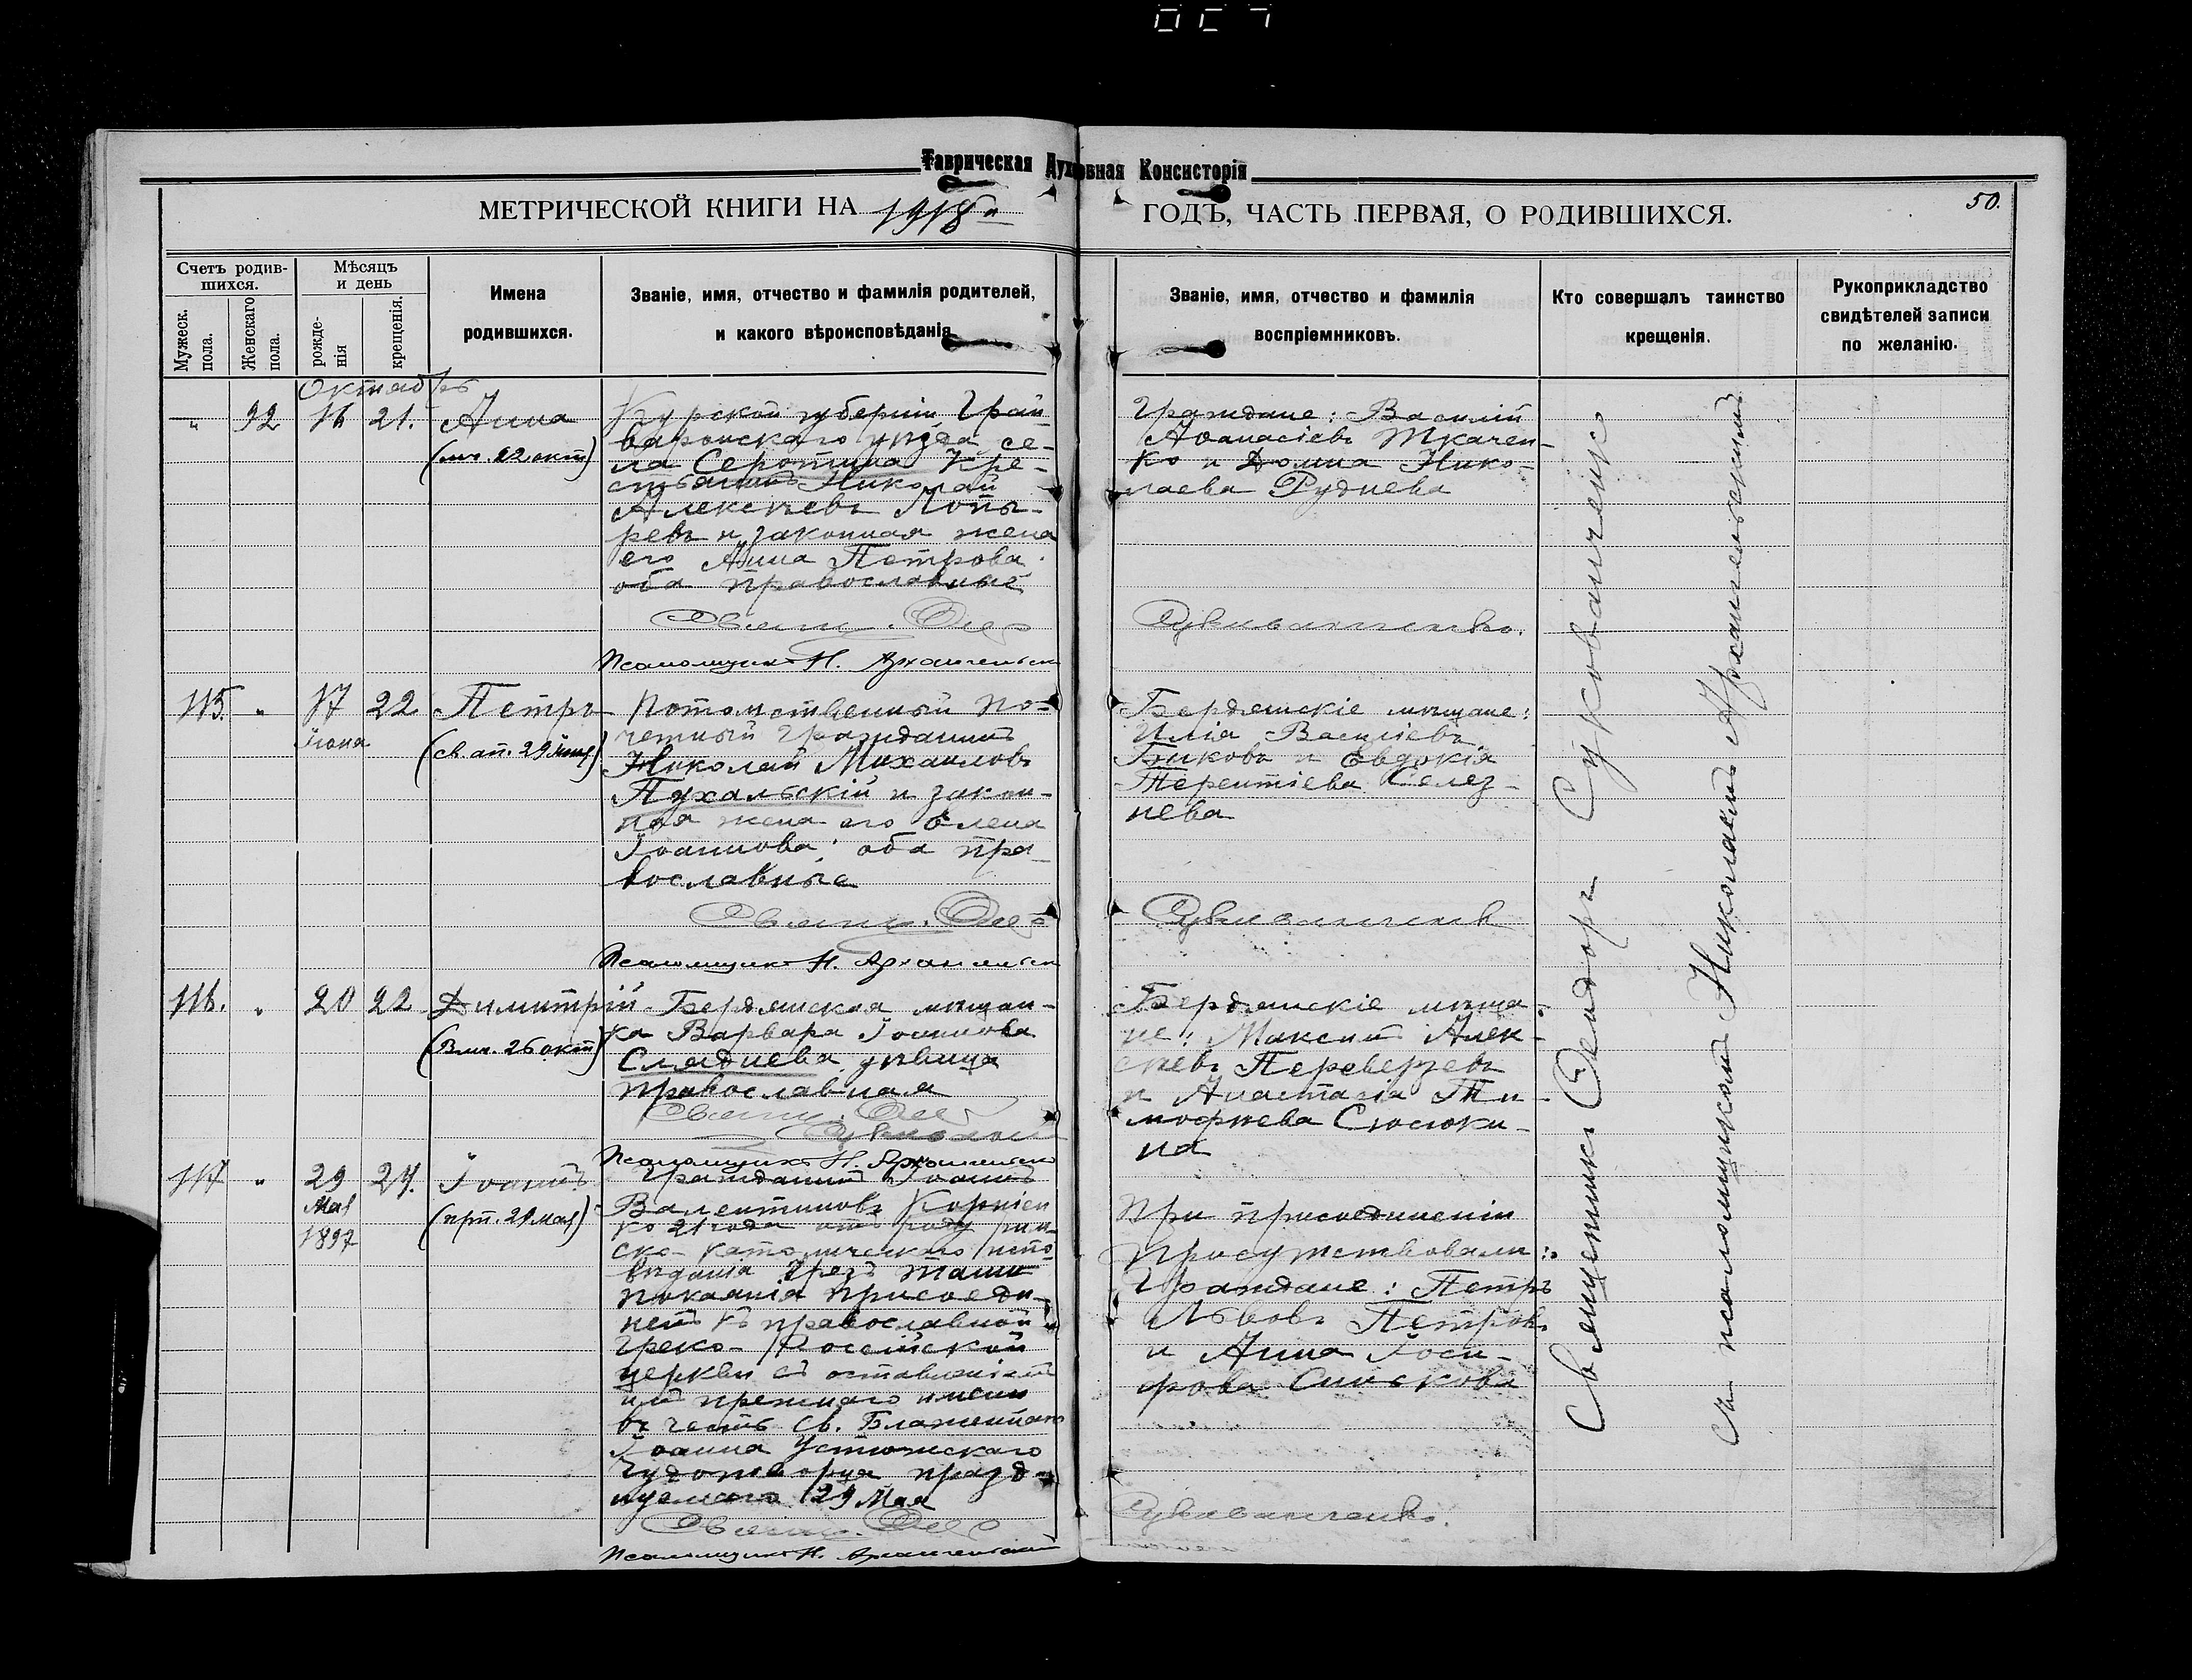 Таврическая Духовная Консисторія
МЕТРИЧЕСКОЙ КНИГИ НА 1918 ГОДЪ, ЧАСТЬ ПЕРВАЯ, О РОДИВШИХСЯ.
50.
Счетъ родив-
шихся.
Мужеск.
пола.
Женскаго
пола.
Мѣсяцъ
и день
рожде-
нія
крещенія.
Имена
родившихся.
Званіе, имя, отчество и фамилія родителей,
и какого вѣроисповѣданія
Званіе, имя, отчество и фамилія
воспріемниковъ.
Кто совершалъ таинство
крещенія.
Рукоприкладство
свидѣтелей записи
по желанію.
Октябрь
" 92 16 21. Анна
(мч. 22 окт)
Курской губерніи, Грай
воронскаго уѣзда се-
ла Серотина Кре-
стьянинъ Николай
Алексѣевъ
ревъ и законная жена
его Анна Петрова
оба православные
Свящ. Ѳеод
Псаломщикъ Н. Архангельск
Граждане: Василій
Аѳанасіевъ Ткачен-
ко и Домна Нико-
лаева Руднева
Сукованченко.
115. " 17 22 Петръ
Іюня
(св. ап. 29 Іюня)
Потомственный По-
четный Гражданинъ
Николай Михаиловъ
Пухальскій и закон-
ная жена его Елена
Іоаннова; оба пра-
вославные
Свящ. Ѳеод
Псаломщикъ Н. Архангельск
Бердянскіе мѣщане:
Илія Василіевъ
Быковъ и Евдокія
Терентіева Селез-
нева
Сукованченк
116. " 20 22 Димитрій
(Влм. 26 окт)
Бердянская мѣщан-
ка Варвара Іоаннова
Слѣднева, дѣвица
православная
Свящ. Ѳеод
Псаломщикъ Н. Архангельск
Бердянскіе мѣща-
не: Максимъ Алек-
сѣевъ Переверзевъ
и Анастасія Ти-
моѳеева Сюсюки-
на
117 " 29 24. Іоаннъ
Мая
1897
(прп. 29 Мая)
Гражданинъ Іоаннъ
Валентиновъ Корніен
ко 21 года отъ роду рим-
ско-католическаго испо-
вѣданія чрезъ таин
покаянія присоеди-
ненъ къ православной
Греко-Россійской
церкви съ оставленіемъ
имъ прежняго имени
въ честь Св. Блаженнаго
Іоанна Устюжскаго
Чудотворца празд-
нуемаго 29 Мая
Свящ. Ѳеод
Псаломщикъ Н. Архангельскій
При присоединеніи
присутствовали:
Граждане: Петръ
Львовъ Петровъ
и Анна Іоси-
фова Синькова
Сукованченко.
Священникъ Ѳеодоръ Сукованченко
съ псаломщикомъ Николаемъ Архангельскимъ